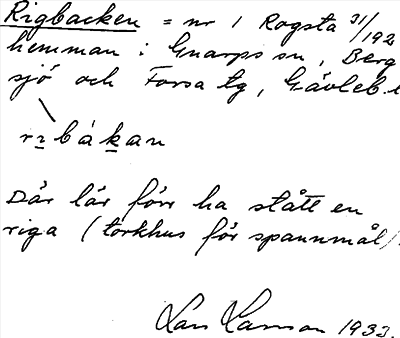 Rigbacken = nr 1 Rogsta 31/192
hemman i Gnarps sn, Berg
sjö och Forsa tg, Gävleb.l
rɪbákan
Där lär förr ha stått en
riga (torkhus för spannmål).
Lars Larsson 1933.